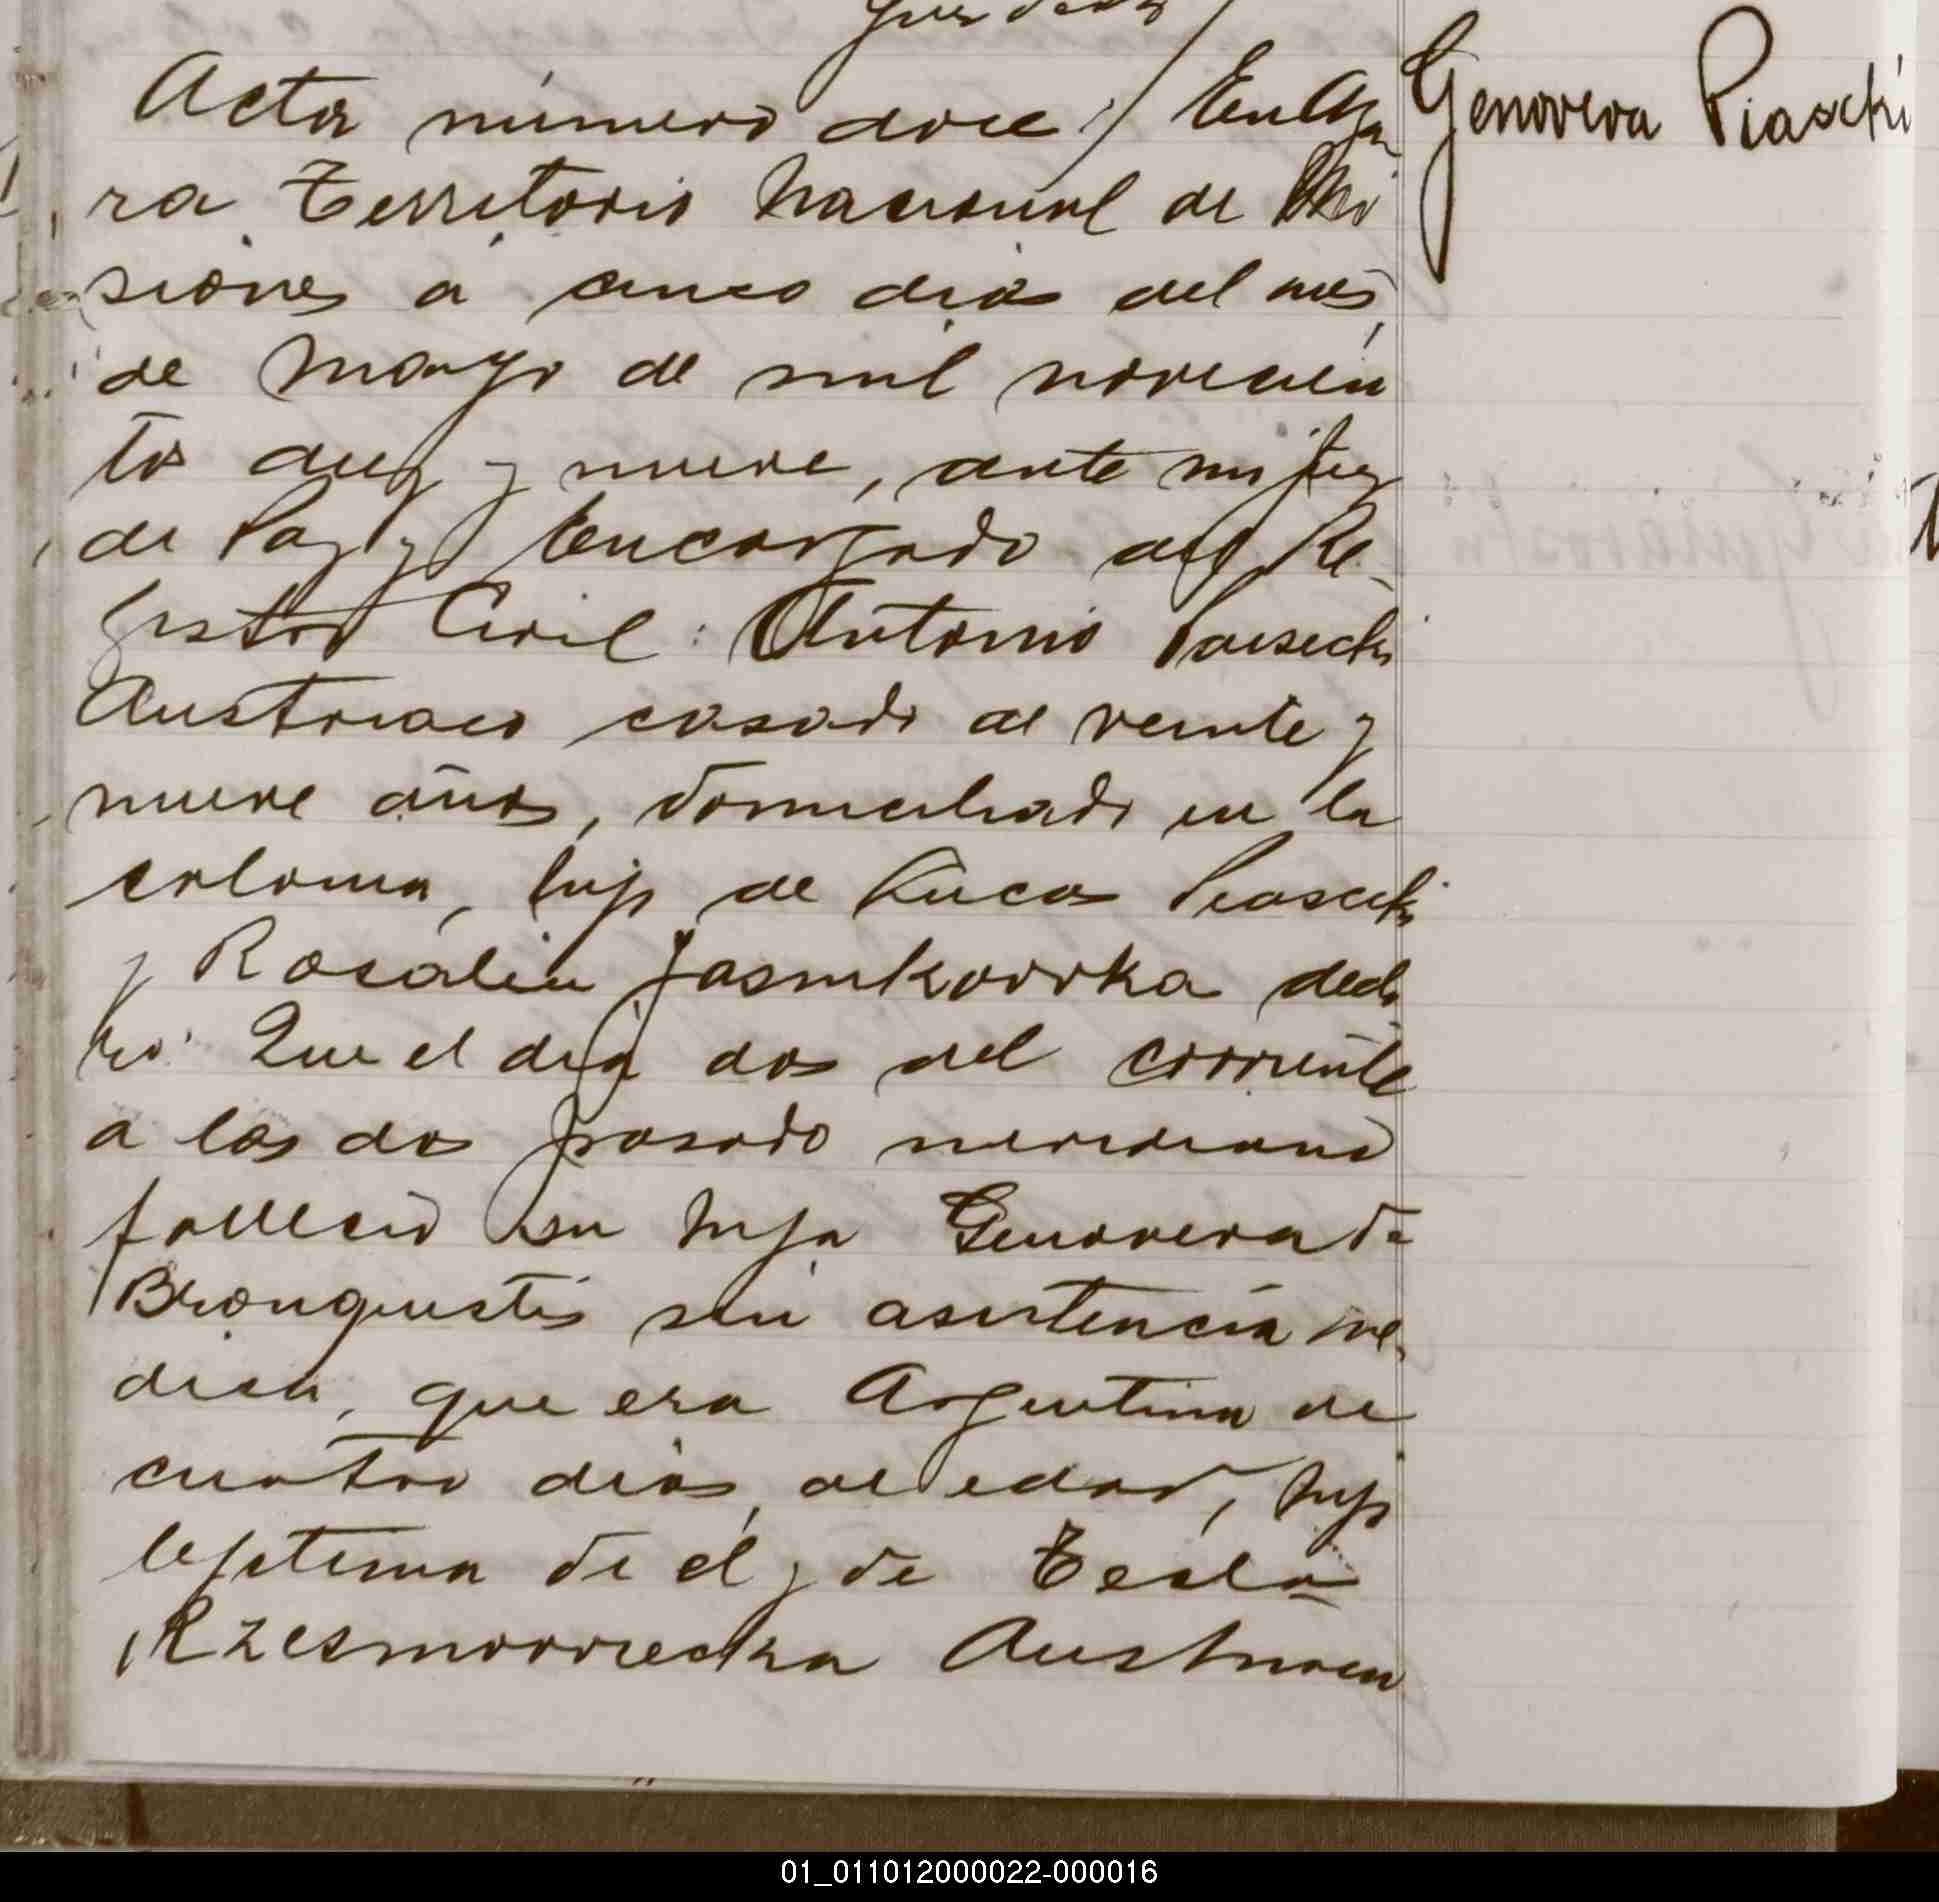 Acta número doce / En Aza
Genoveva Piascki
ra Territorio Nacional de Mi
siones a cinco dias del mes
de Mayo de mil novecien
tos diez y nueve, ante mi Juez
de Paz y Encargado del Re-
gistro Civil: Antonio Piasecki
Austriaco casado de veinte y
nueve años, domiciliado en la
colonia, hijo de Lucas Piasecki
y Rosalia Jasnikovvka decla
ró: Que el dia dos del corriente
a las dos pasado meridiano
falleció su hija Genoveva de
Bronquitis sin asistencia me-
dica, que era Argentina de
cuatro dias de edad, hija
lejitima de el y de Tecla
Rzesniovviecka Austriaca
01_011012000022-000016